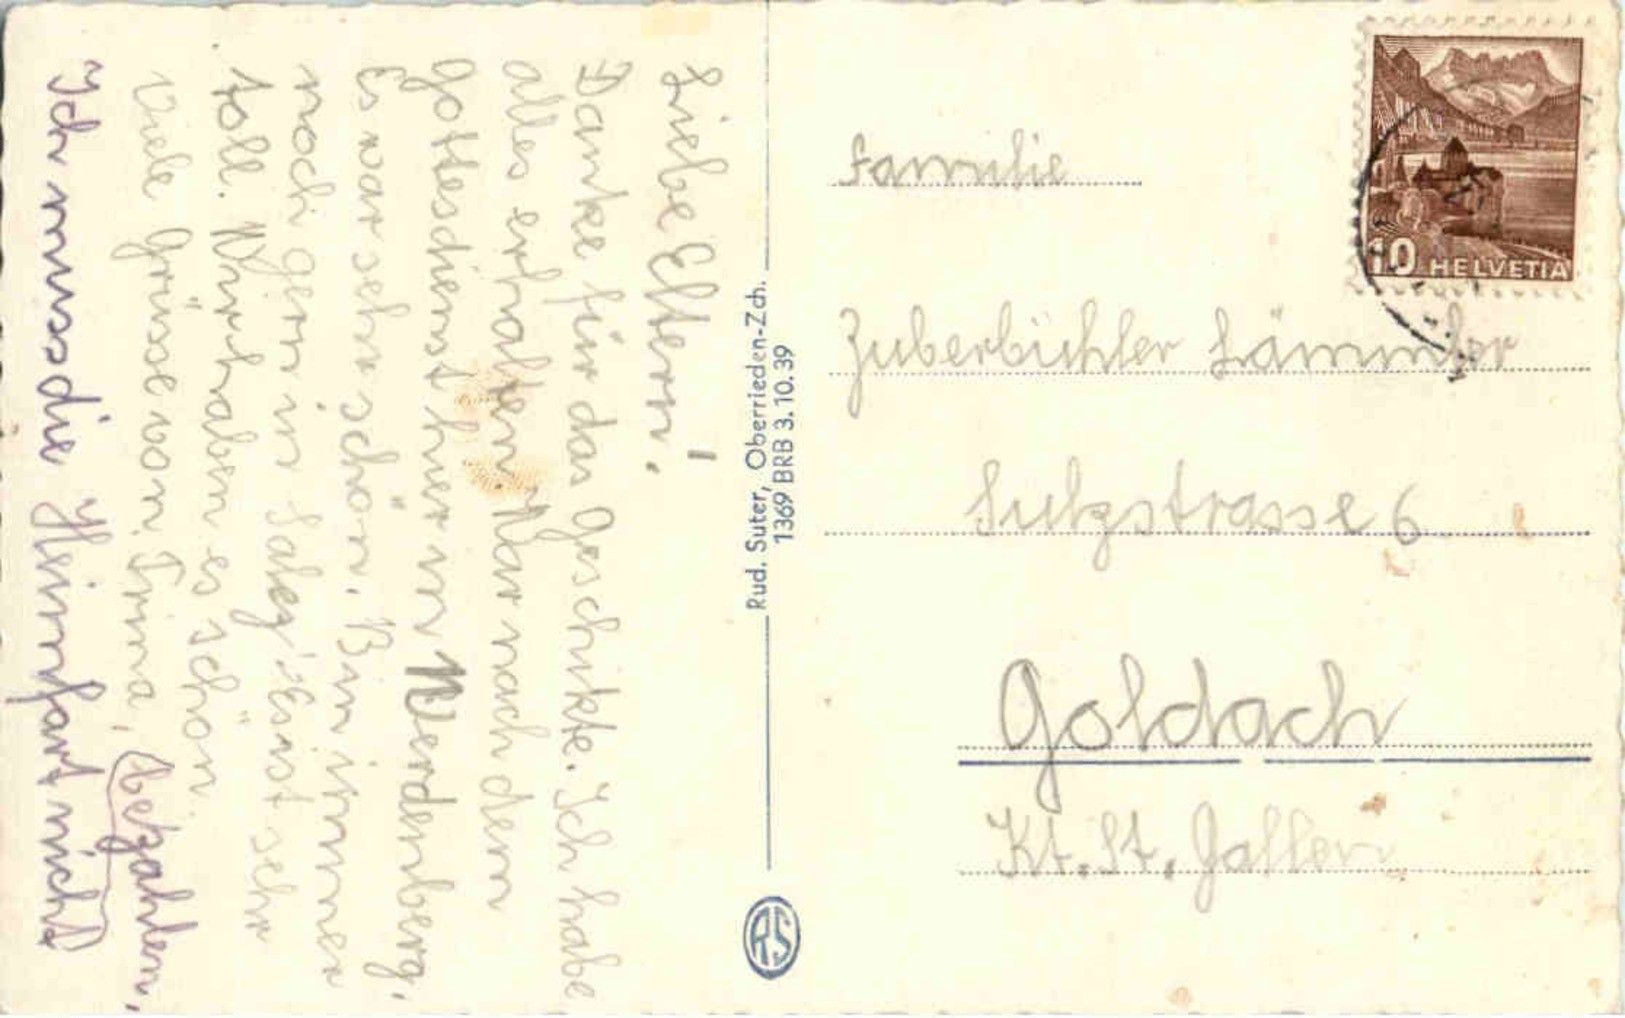 Liebe Eltern!
Danke für das Geschikte. Ich habe
alles erhalten. War nach dem
Gottesdienst hier in Werdenberg.
Es war sehr schön. Bin immer
noch gern in Salez. Es ist sehr
toll. Wir haben es schön.
Viele Grüsse von Irma,
Ich muss die Heimfart nicht
bezahlen,
Rud. Suter, Oberrieden-Zch.
1369 BRB 3.10.39
RS
10 HELVETIA
Familie
Zuberbühler Lämmler
Sulzstrasse 6
Goldach
Kt. St. Gallen